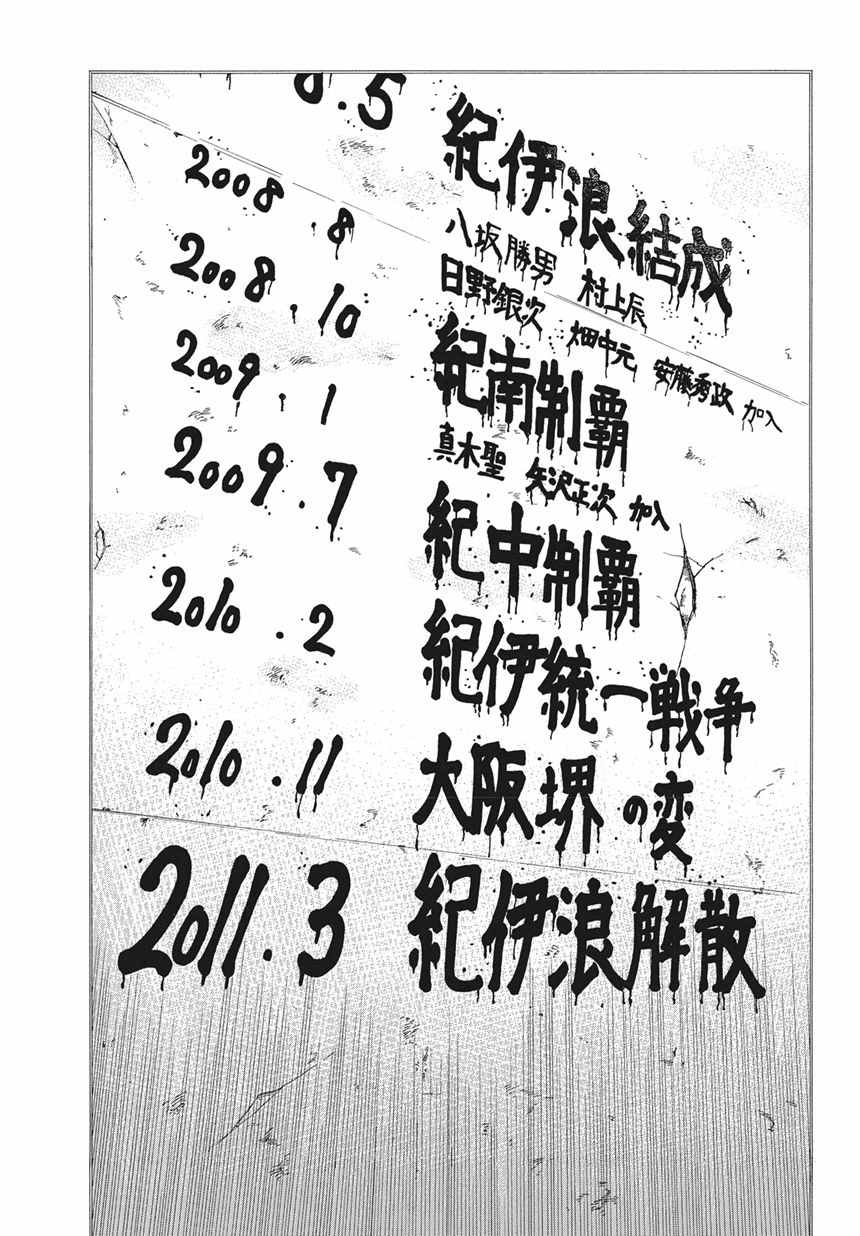 8.5 紀伊浪結成
八坂勝男 村上辰
2008.8 日野銀次 畑中元 安藤秀政 加入
2008.10 紀南制覇
2009.1 真木聖 矢沢正次 加入
2009.7 紀中制覇
2010.2 紀伊統一戦争
2010.11 大阪堺の変
2011.3 紀伊浪解散